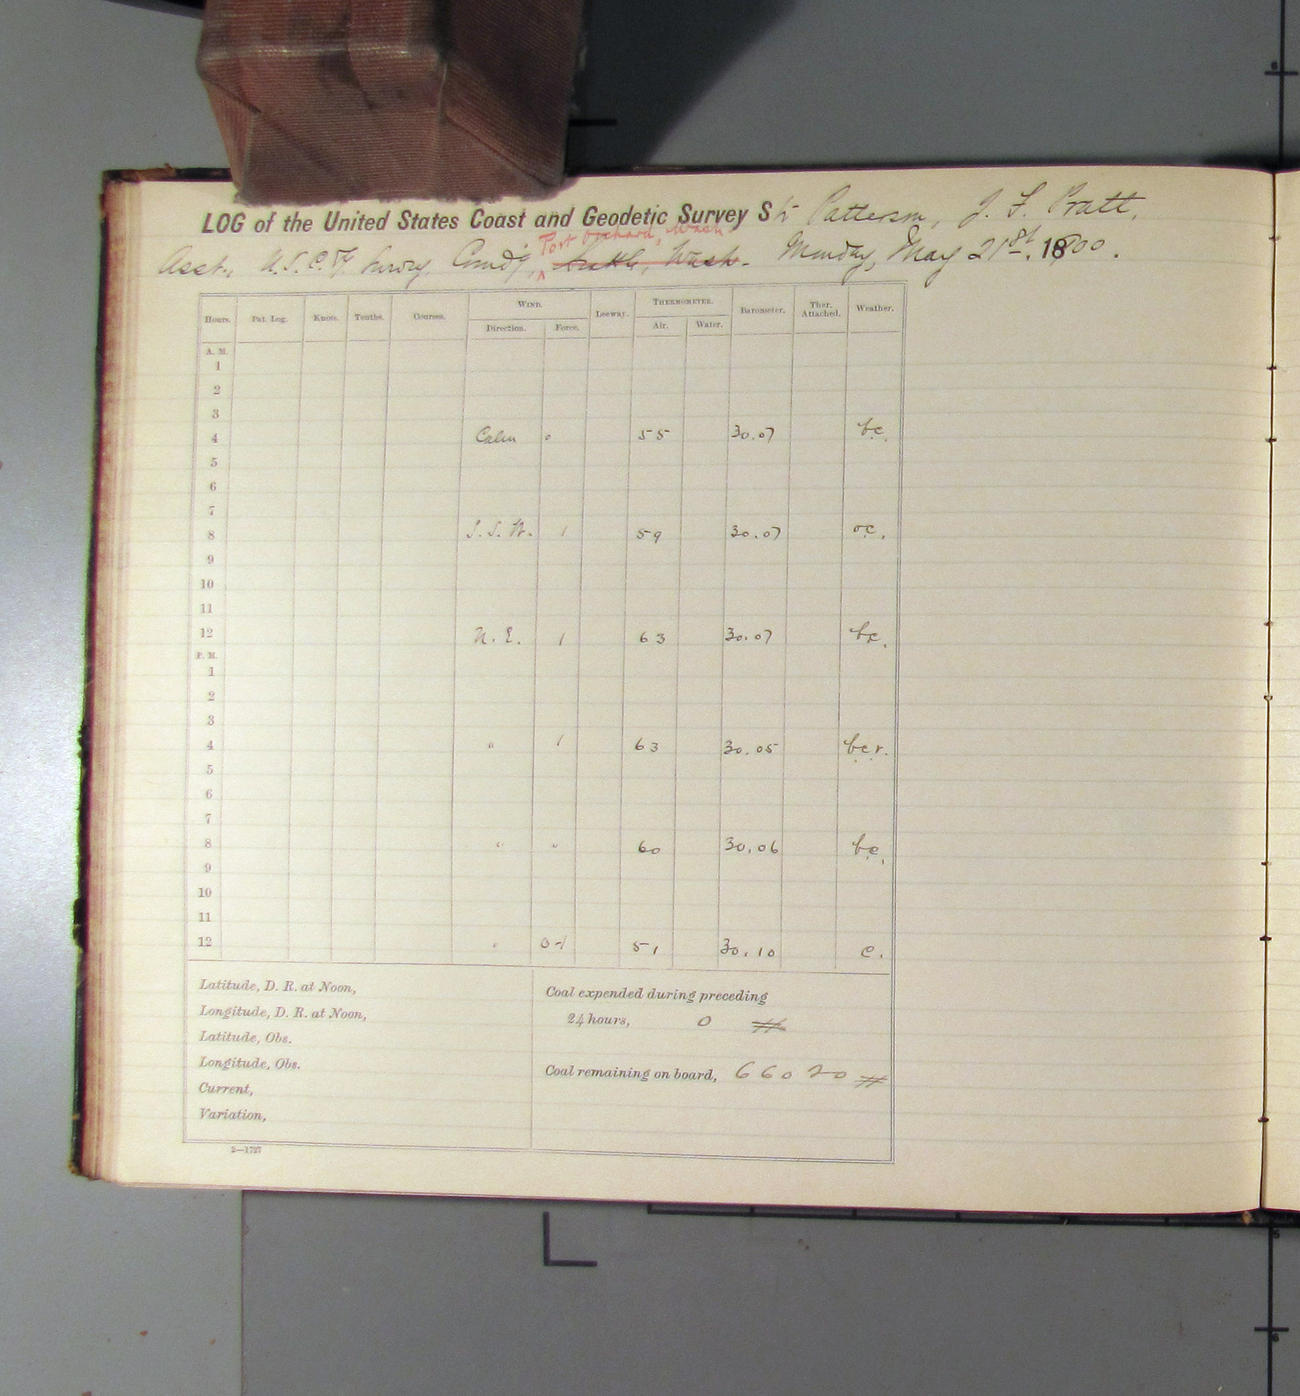 LOG of the United States Coast and Geodetic Survey Str Patterson, J. F. Pratt,
Port Orchard, Wash
Asst., U.S.C. & G. Survey Comd'g, Seattle, Wash. Monday, May 21st, 1900.
Hours. Pat. Log. Knots. Tenths. Courses. WIND. Leeway. THERMOMETER. Barometer. Ther. Attached. Weather.
Direction. Force. Air. Water.
A. M.
1
2
3
4 Calm 0 55 30.07 bc.
5
6
7
8 S.S.W. 1 59 30.07 oc.
9
10
11
12 N.E. 1 63 30.07 bc.
P. M.
1
2
3
4 " 1 63 30.05 bcr.
5
6
7
8 " " 60 30.06 bc.
9
10
11
12 " 0-1 51 30.10 c.
Latitude, D. R. at Noon,
Longitude, D. R. at Noon,
Latitude, Obs.
Longitude, Obs.
Current,
Variation,
Coal expended during preceding
24 hours, 0 #
Coal remaining on board, 66020 #
2—1727